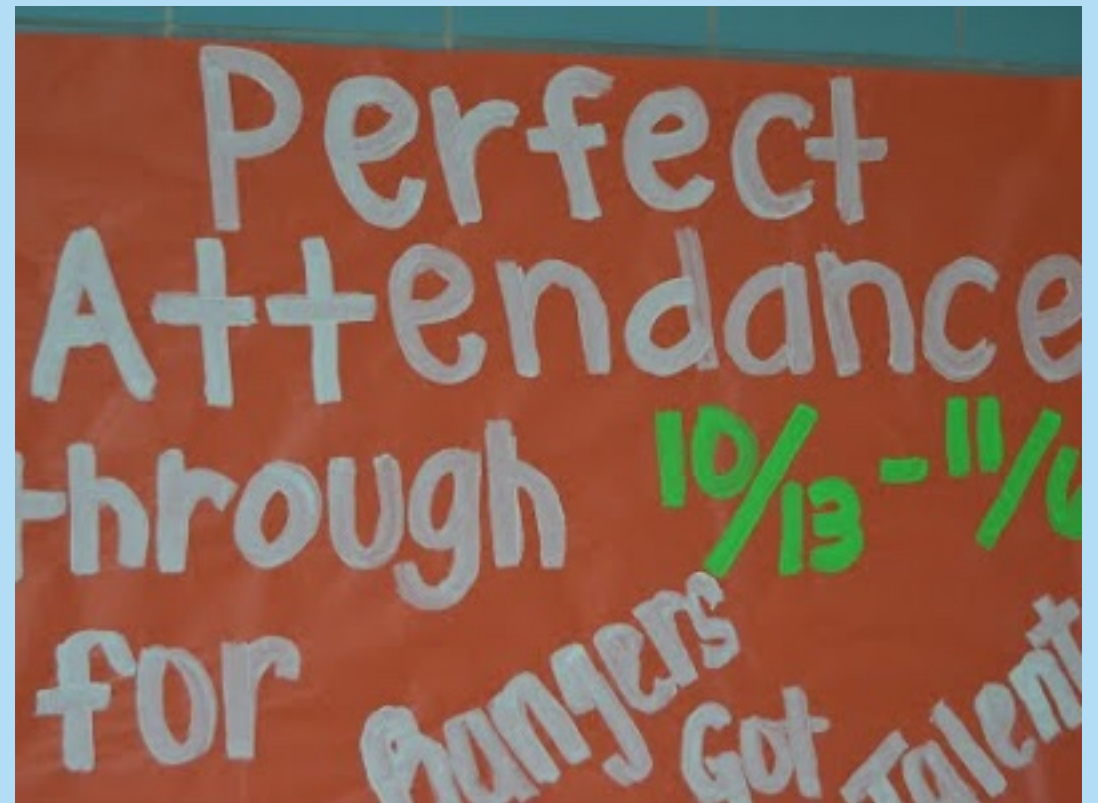 Perfect
Attendance
through 10/13 - 11/6
for Rangers Got Talent